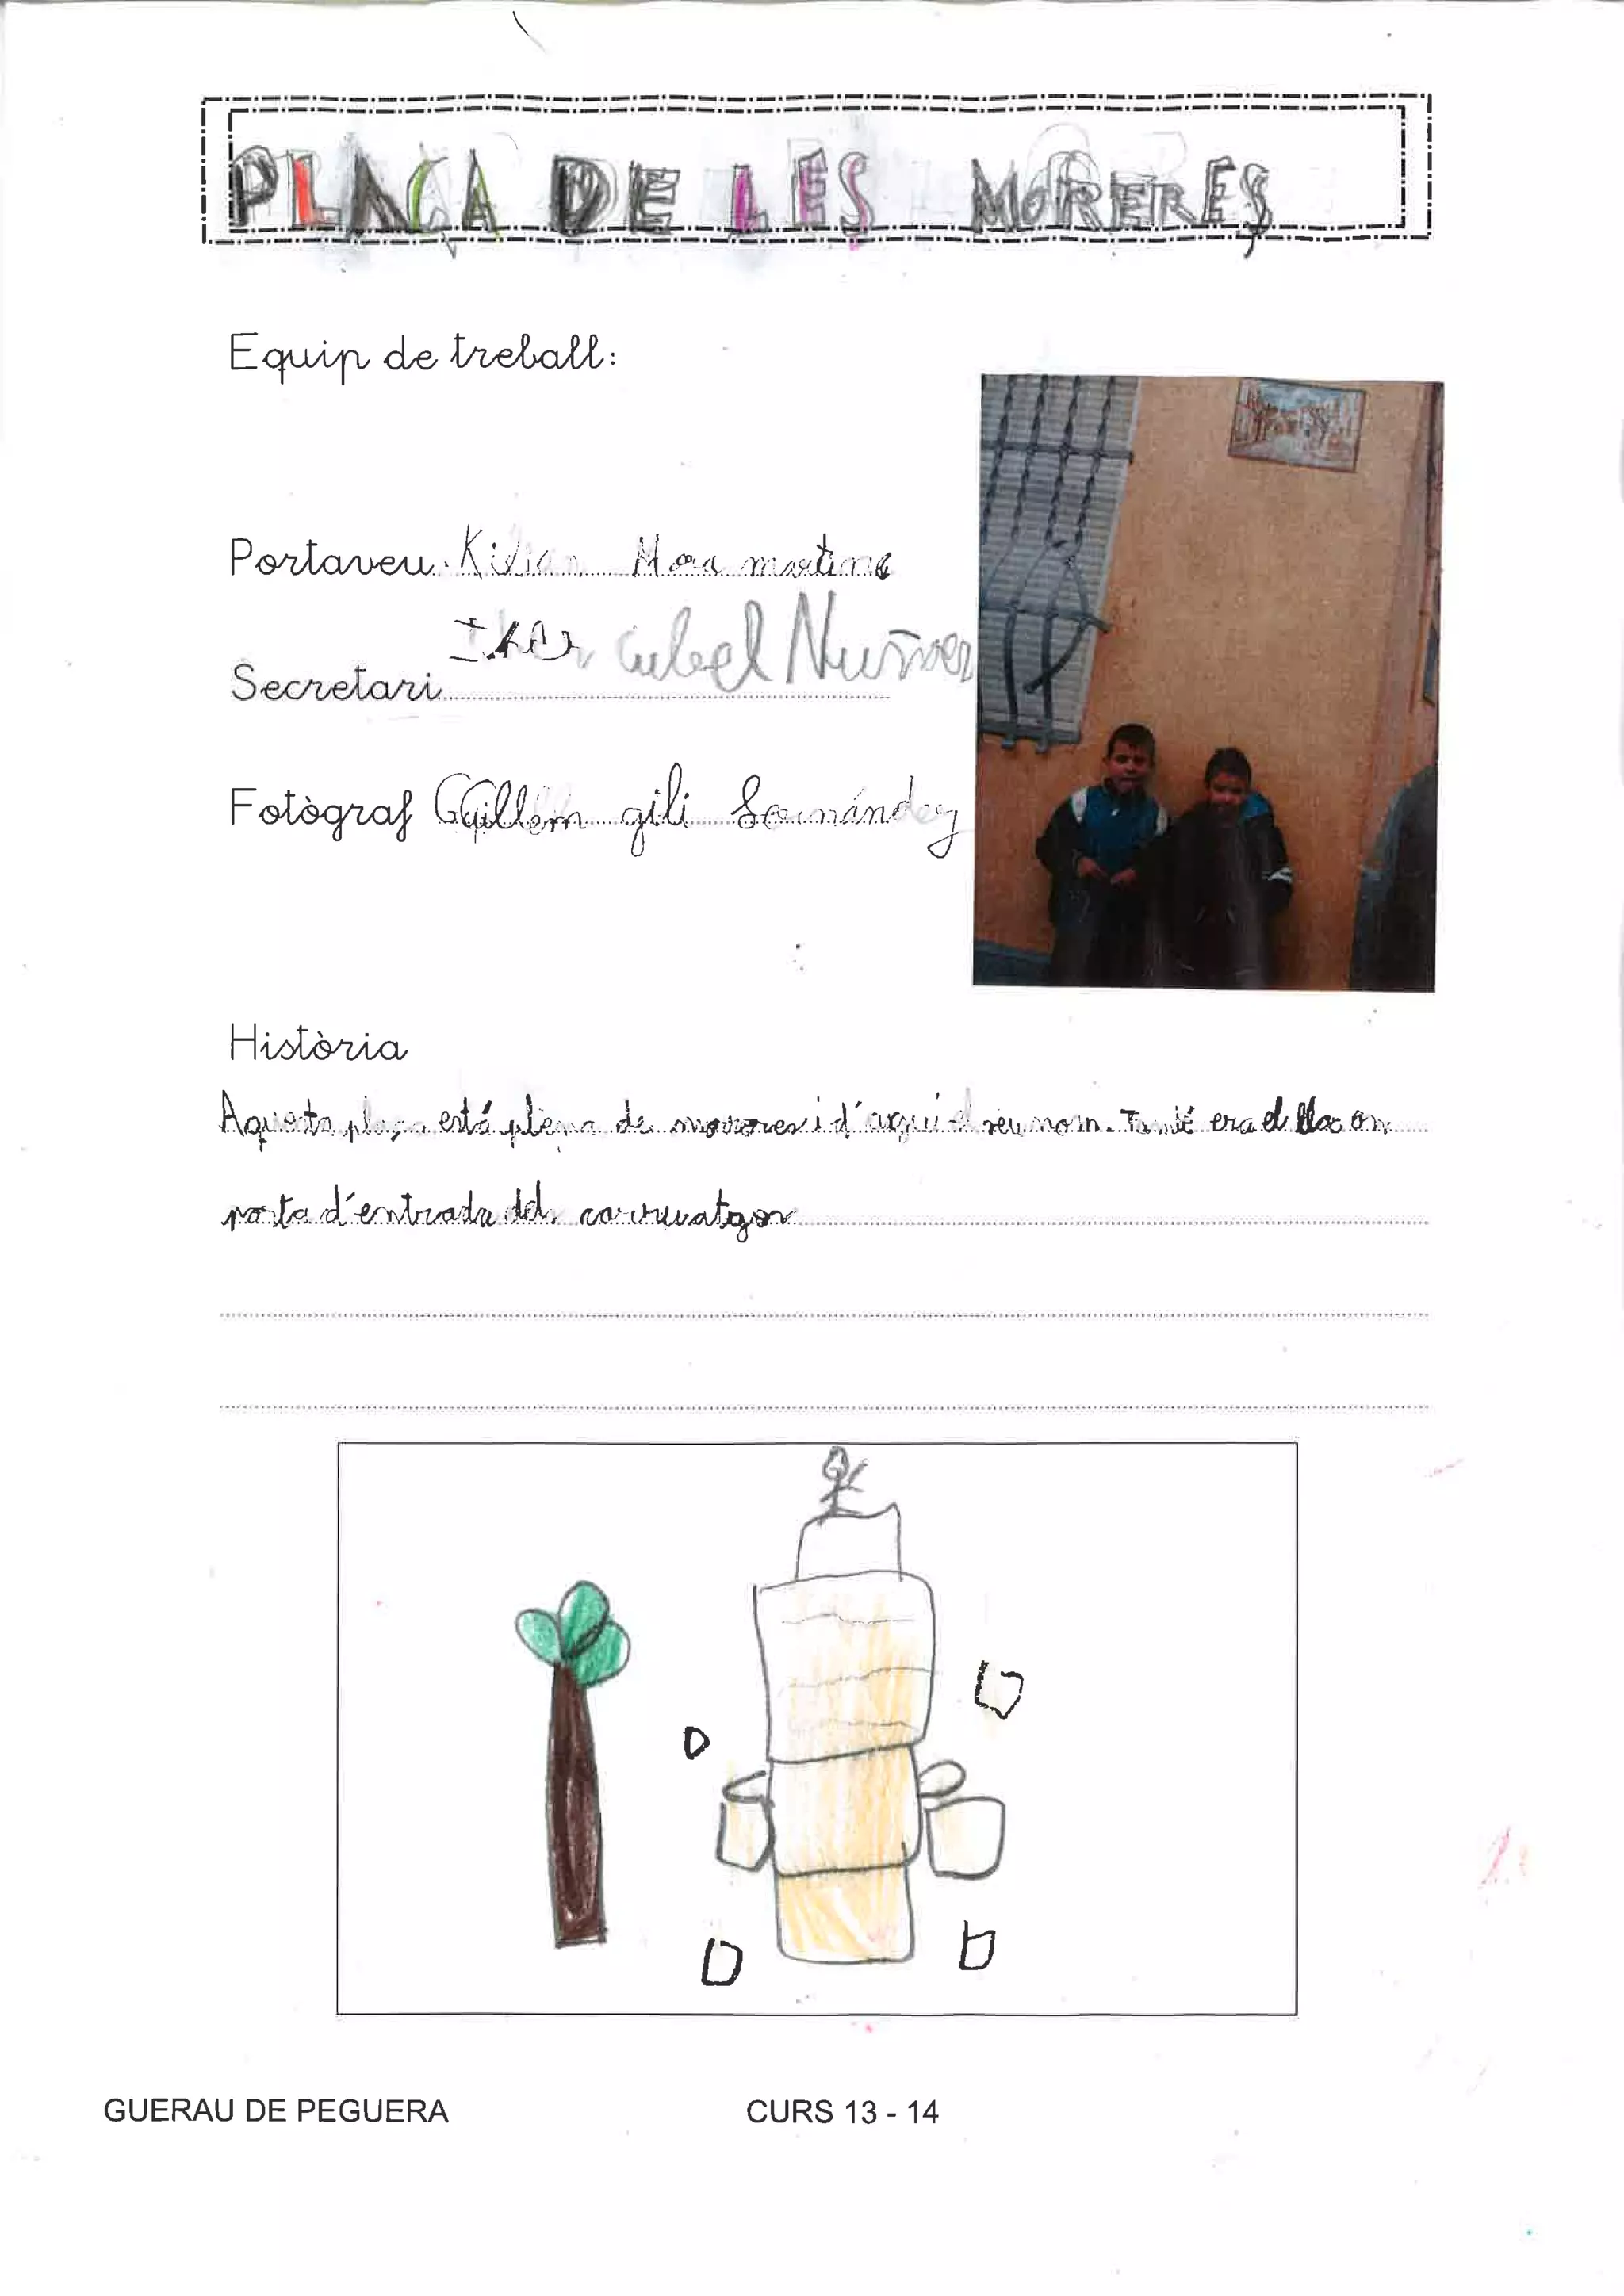 PLAÇA DE LES MORERES
Equip de treball:
Portaveu Kilian Mora
Secretari Iker Nuñez
Fotògraf Guillem gili
Història
Aquesta plaça está plena de moreres i d'aquí el seu nom. També era el lloc on
porta d'entrada del
GUERAU DE PEGUERA CURS 13 - 14